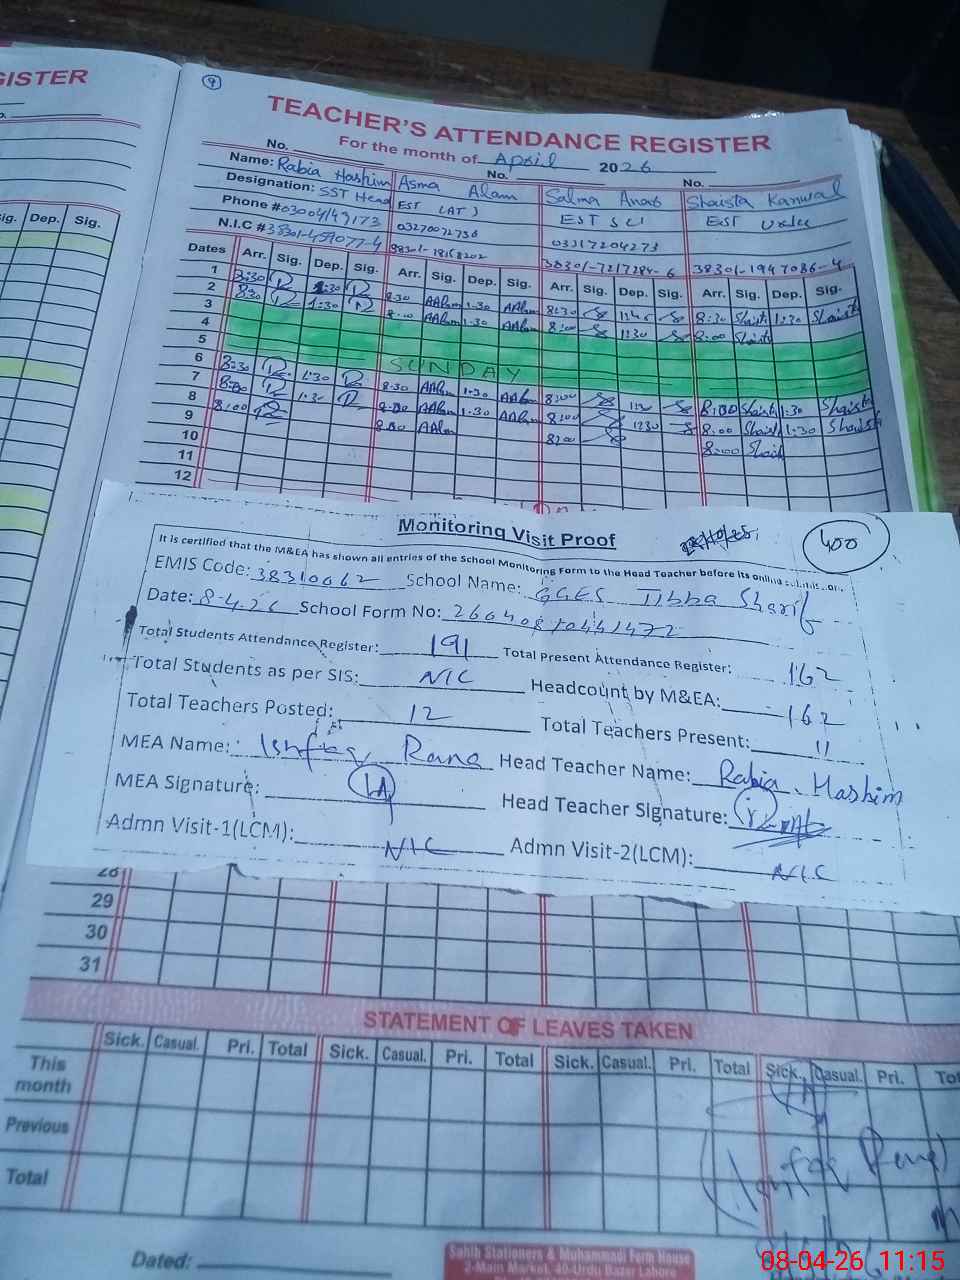 GISTER
Sig. Dep. Sig.
9
TEACHER'S ATTENDANCE REGISTER
For the month of April 2026
No. No. No.
Name: Rabia Hashim Asma Alam Salma Anab Shaista Kanwal
Designation: SST Head EST (AT) EST SCI EST Urdu
Phone # 03270072736 03317204273
N.I.C # 38301-7217284-6 38301-1947086-4
Dates Arr. Sig. Dep. Sig. Arr. Sig. Dep. Sig. Arr. Sig. Dep. Sig. Arr. Sig. Dep. Sig.
1 8:30 1:30 8:30 AAlam 1:30 AAlam 8:30 1145 8:30 Shaista 1:30 Shaista
2 8:30 1:30 8:00 AAlam 1:30 AAlam 8:00 1230 8:00 Shaista
3
4
5 SUNDAY
6 8:30 1:30 8:30 AAlam 1:30 AAlam 8:00 8:00 Shaista 1:30 Shaista
7 8:00 1:30 8:00 AAlam 1:30 AAlam 8:00 1230 8:00 Shaist 1:30 Shaista
8 8:00 8:00 AAlam 8:00 8:00 Shaist
9
10
11
12
Monitoring Visit Proof
400
It is certified that the M&EA has shown all entries of the School Monitoring Form to the Head Teacher before its online
EMIS Code: 38310062 School Name: GGES Tibba Sharif
Date: 8-4-26 School Form No:
Total Students Attendance Register: 191 Total Present Attendance Register: 162
Total Students as per SIS: NIC Headcount by M&EA: 162
Total Teachers Posted: 12 Total Teachers Present: 11
MEA Name: Ishfaq Rana Head Teacher Name: Rabia Hashim
MEA Signature: Head Teacher Signature:
Admn Visit-1(LCM): NIC Admn Visit-2(LCM): NIC
28
29
30
31
STATEMENT OF LEAVES TAKEN
Sick. Casual. Pri. Total Sick. Casual. Pri. Total Sick. Casual. Pri. Total Sick. Casual. Pri.
This month
Previous
Total
(Ishfaq Rana)
Dated:
Sahib Stationers & Muhammadi Form House
2-Main Market, 40-Urdu Bazar Lahore
08-04-26 11:15